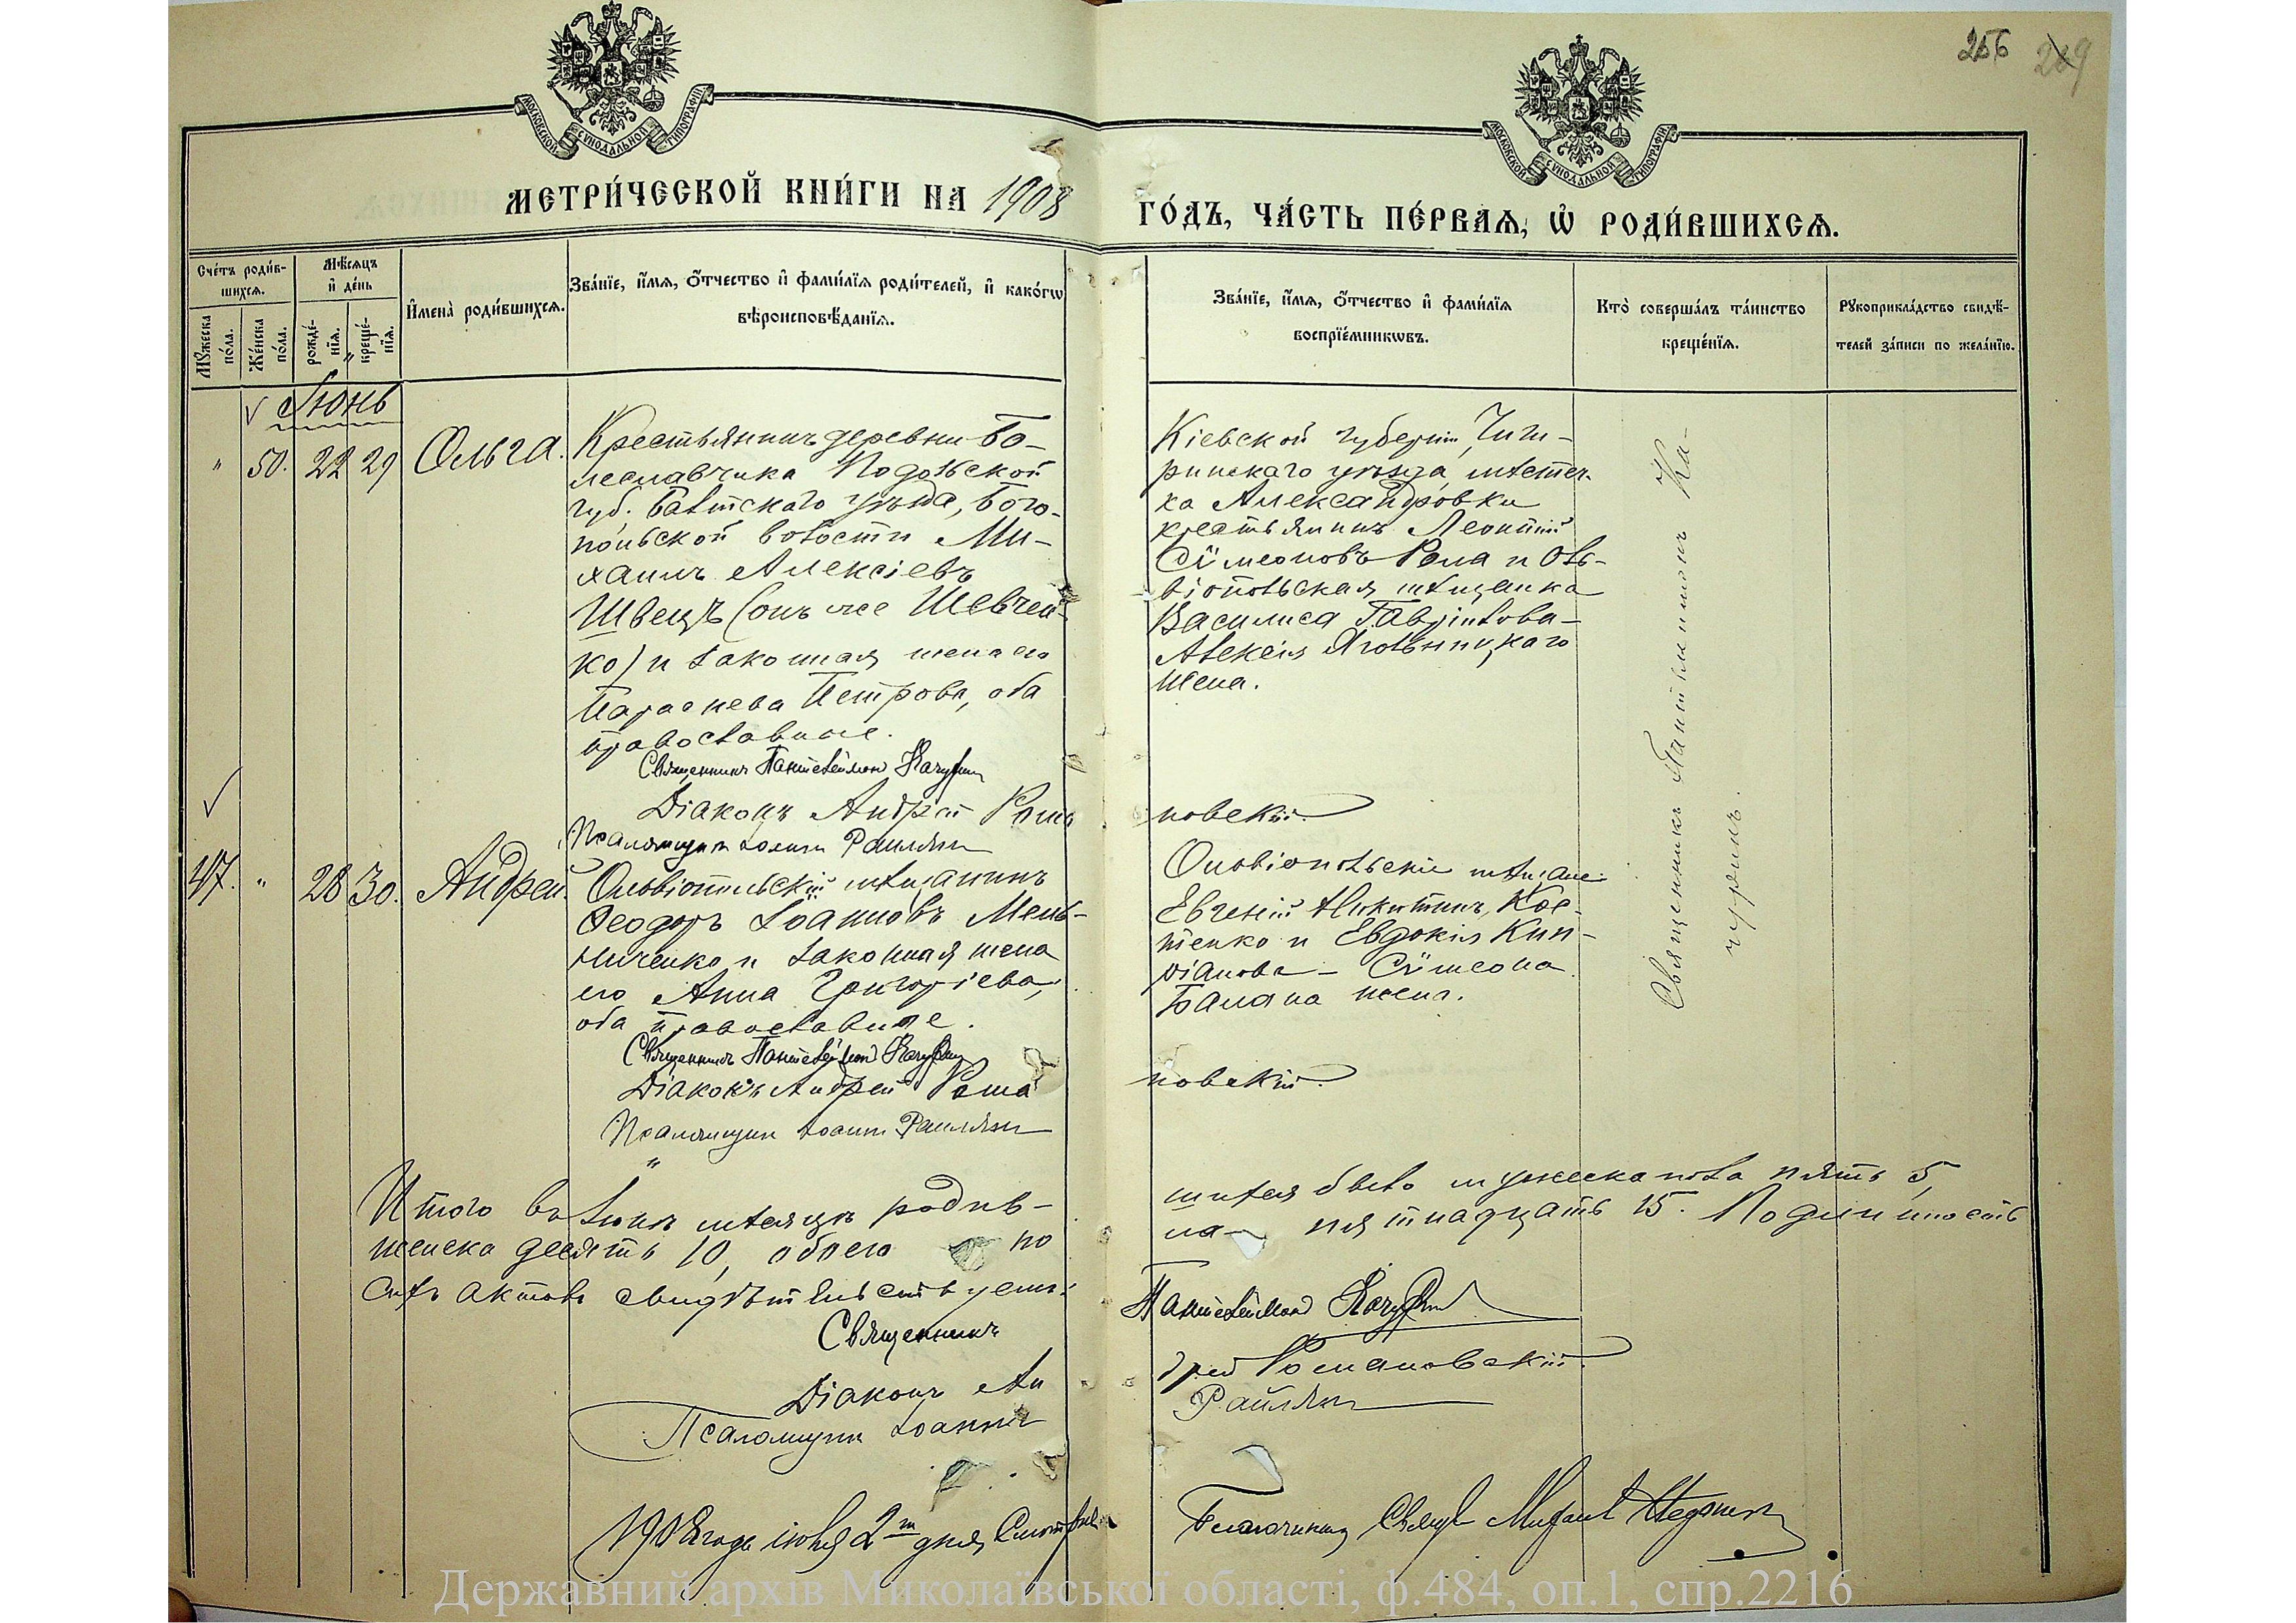 256 269
МОСКОВСКОЙ СѴНОДАЛЬНОЙ ТИПОГРАФІИ
МОСКОВСКОЙ СѴНОДАЛЬНОЙ ТИПОГРАФІИ
МЕТРИ́ЧЕСКОЙ КНИ́ГИ НА 1908 ГО́ДЪ, ЧА́СТЬ ПЕ́РВАѦ, Ѡ҆ РОДИ́ВШИХСѦ.
Сче́тъ роди́в-
шихсѧ.
Мꙋ́жеска по́ла.
Же́нска по́ла.
Мѣ́сѧцъ
и҆ де́нь
рожде́-
нїѧ.
креще́-
нїѧ.
И҆мена̀ роди́вшихсѧ.
Зва́нїе, и҆́мѧ, ѻ҆́тчество и҆ фами́лїѧ роди́телей, и҆ како́гѡ
вѣроисповѣ́данїѧ.
Зва́нїе, и҆́мѧ, ѻ҆́тчество и҆ фами́лїѧ
воспрїе́мникѡвъ.
Кто̀ соверша́лъ та́инство
креще́нїѧ.
Рꙋкоприкла́дство свидѣ́-
телей за́писи по жела́нїю.
Іюнь
" 50. 22 29 Ольга.
Крестьянинъ деревни Бо-
леславчика Подольской
губ. Балтскаго уѣзда, Бого-
польской волости Ми-
хаилъ Алексіевъ
Швецъ (онъ же Шевчен-
ко) и законная жена его
Параскева Петрова, оба
православные.
Священникъ Пантелеймон Качурин
Діаконъ Андрей Рома
новскій
Псаломщикъ Іоаннъ Райлян
Кіевской губерніи, Чиги-
ринскаго уѣзда, мѣстеч-
ка Александровки
крестьянинъ Леонтій
Сѵмеоновъ Рома и Оль-
віопольская мѣщанка
Василиса Гавріилова-
Алексія Яготыницкаго
жена.
Священникъ Пантелеимонъ Ка-
чуринъ.
47. " 28 30. Андрей.
Ольвіопольскій мѣщанинъ
Феодоръ Іоанновъ Мель-
ниченко и законная жена
его Анна Григоріева,
оба православные.
Священникъ Пантелеймон Качурин
Діаконъ Андрей Рома
новскій
Псаломщикъ Іоаннъ Райлян
Ольвіопольскіе мѣщане:
Евгеній Никитинъ Кос-
тенко и Евдокія Кип-
ріанова- Сѵмеона
Балана жена.
Итого въ Іюнѣ мѣсяцѣ родив-
шихся было мужеска пола пять 5,
женска десять 10, обоего по
ла- пятнадцать 15. Подлинность
сихъ актовъ свидѣтельствуемъ:
Священникъ Пантелеймонъ Качурин
Діаконъ Андрей Романовскій
Псаломщикъ Іоаннъ Райлян
1908 года іюля 2го дня, Благочинный Михаил
Державний архів Миколаївської області, ф.484, оп.1, спр.2216